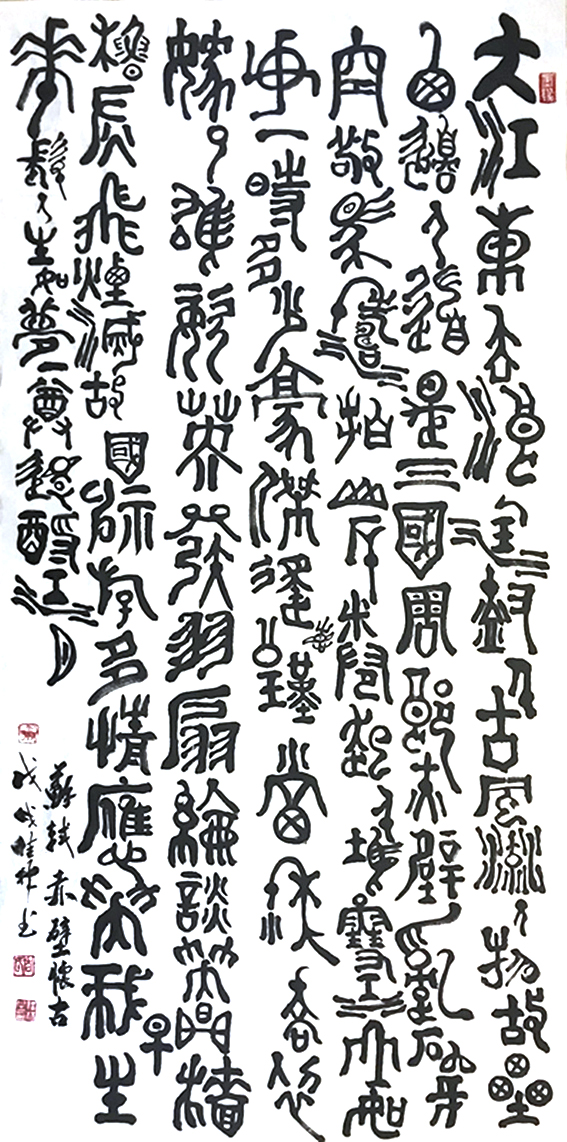 大江東去浪淘盡千古風流人物故壘
西邊人道是三國周郎赤壁亂石穿
空驚濤拍岸捲起千堆雪江山如
畫一時多少豪傑遙瑾當年小喬初
嫁了雄姿英發羽扇綸談笑間檣
櫓灰飛煙滅故國神游多情應笑我早生
華髮人生如夢一尊還酹江月
蘇軾赤壁懷古
戊戌书